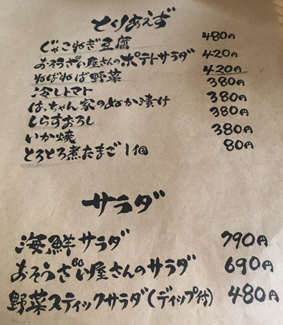 とりあえず
じゃこねぎ豆腐 480円
おそうざい屋さんのポテトサラダ 420円
ねばねば野菜 420円
冷しトマト 380円
ばっちゃん家のぬか漬け 380円
しらすおろし 380円
いか焼 380円
とろとろ煮たまご1個 80円
サラダ
海鮮サラダ 790円
おそうざい屋さんのサラダ 690円
野菜スティックサラダ(ディップ付) 480円